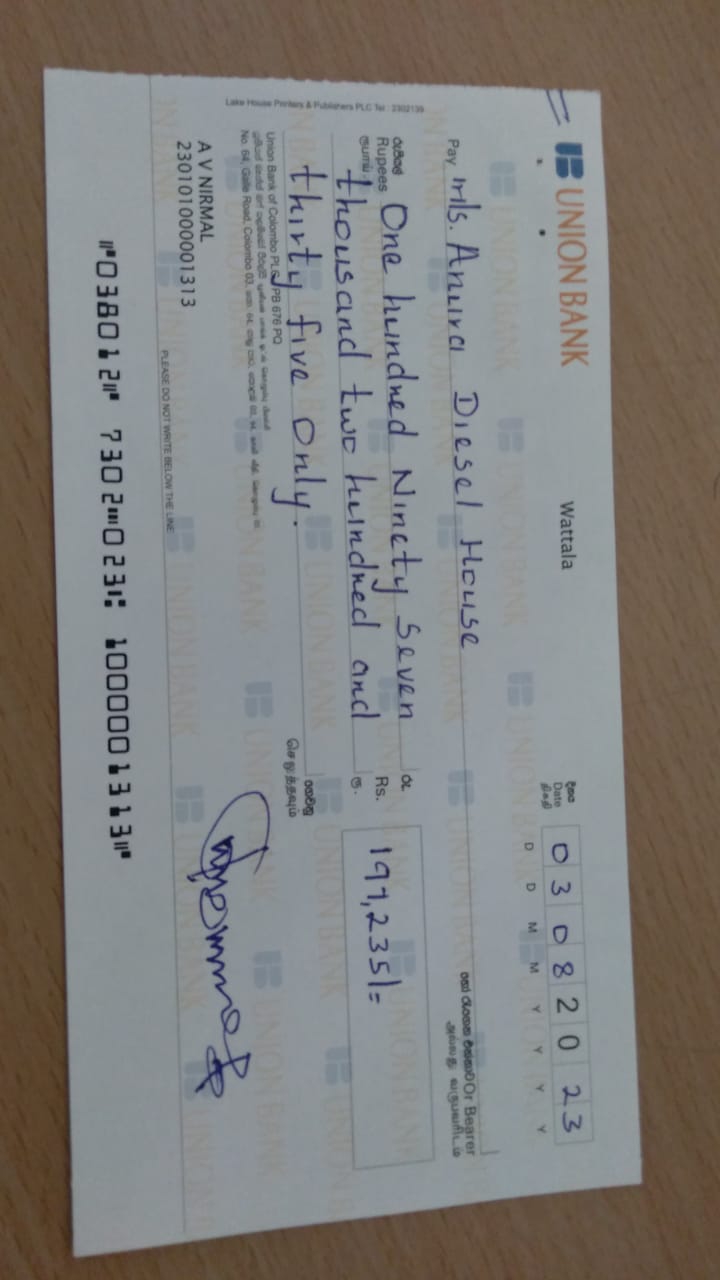 UNION BANK
Wattala
දිනය
Date
திகதி
0 3 0 8 2 0 2 3
D D M M Y Y Y Y
Pay M/s. Anura Diesel House
Or Bearer
அல்லது
රුපියල්
Rupees
ரூபாய்
One hundred Ninety Seven
thousand two hundred and
thirty five only.
රු.
Rs.
ரு.
197,235/=
ගෙවනු
செலுத்தவும்
Union Bank of Colombo PLC PB 676 PQ
No. 64, Galle Road, Colombo 03,
A V NIRMAL
2301010000001313
PLEASE DO NOT WRITE BELOW THE LINE
Lake House Printers & Publishers PLC Tel : 2302139
⑈038012⑈ 7302⑉023⑆ 1000001313⑈